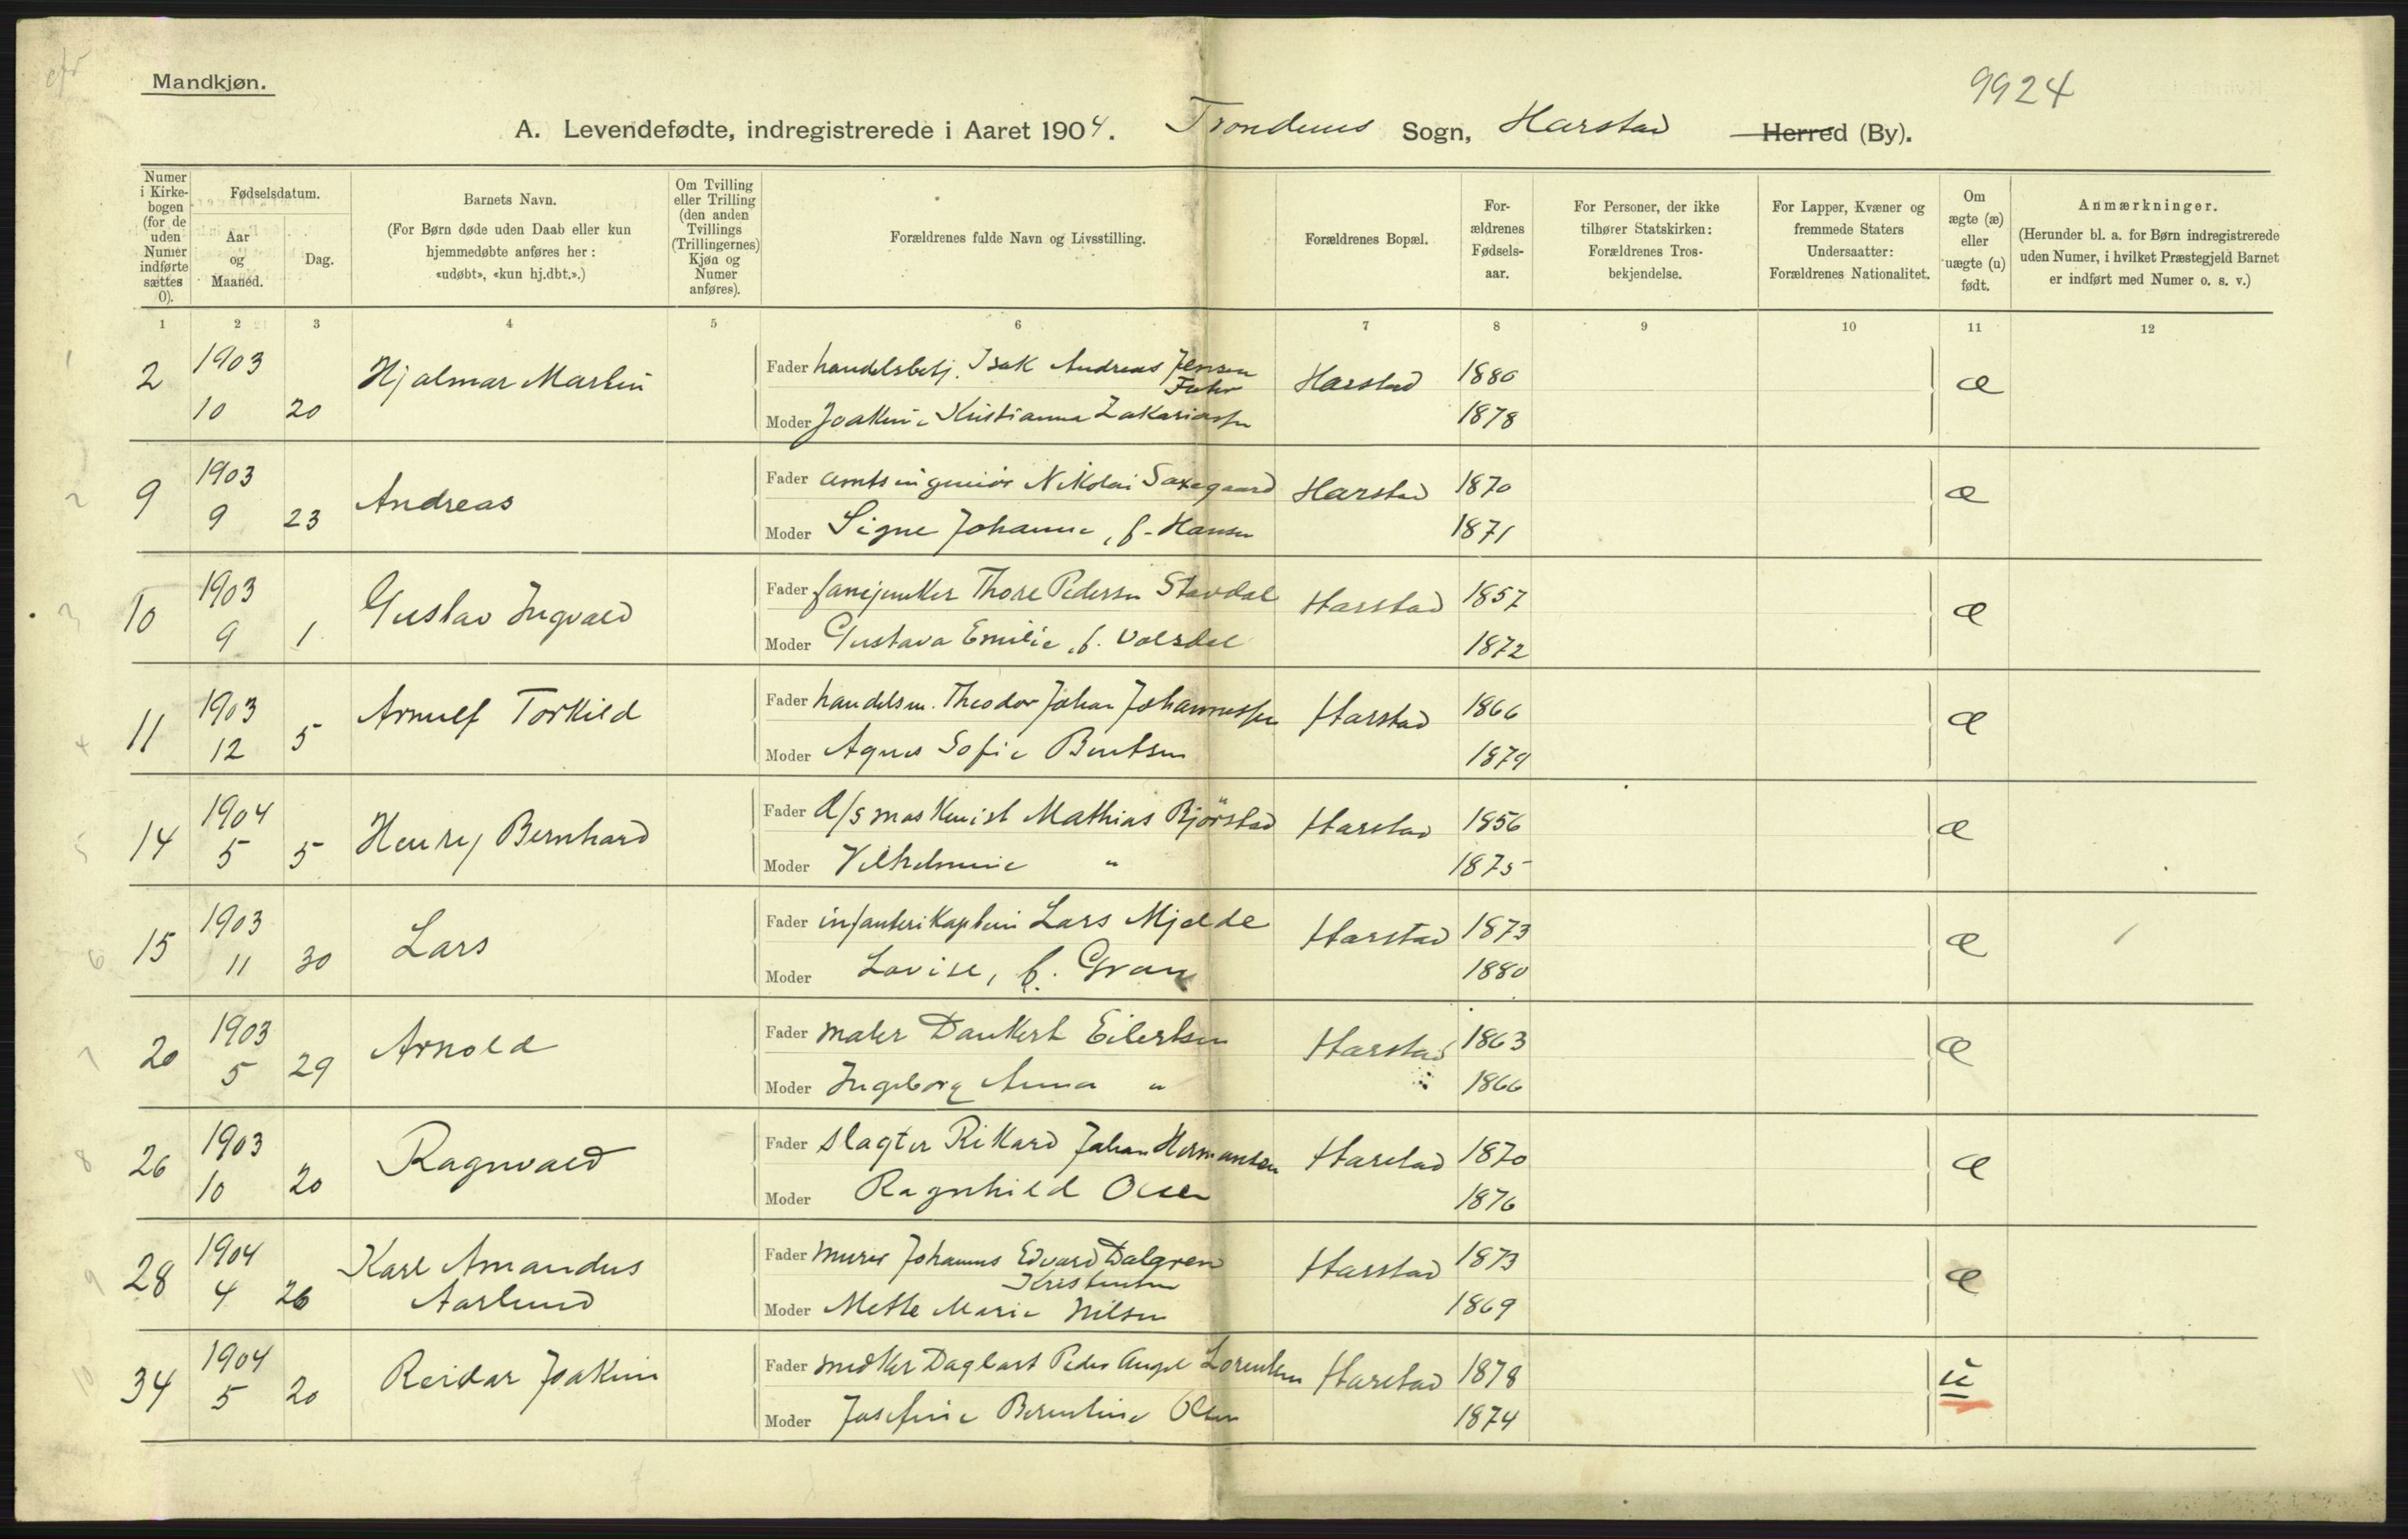 Mandkjøn.
9924
A. Levendefødte, indregistrerede i Aaret 1904. Trondenes Sogn, Harstad Herred (By).
Numer i Kirkebogen (for de uden Numer indførte sættes 0).
Fødselsdatum.
Aar og Maaned.
Dag.
Barnets Navn.
(For Børn døde uden Daab eller kun hjemmedøbte anføres her: «udøbt», «kun hj.dbt.».)
Om Tvilling eller Trilling (den anden Tvillings (Trillingernes) Kjøn og Numer anføres).
Forældrenes fulde Navn og Livsstilling.
Forældrenes Bopæl.
Forældrenes Fødselsaar.
For Personer, der ikke tilhører Statskirken: Forældrenes Trosbekjendelse.
For Lapper, Kvæner og fremmede Staters Undersaatter: Forældrenes Nationalitet.
Om ægte (æ) eller uægte (u) født.
Anmærkninger.
(Herunder bl. a. for Børn indregistrerede uden Numer, i hvilket Præstegjeld Barnet er indført med Numer o. s. v.)
1 2 3 4 5 6 7 8 9 10 11 12
1 2 1903 Hjalmar Martin Fader handelsbetj. Isak Andreas Jensen Harstad 1880 æ
10 20 Moder Joakine Kristianna Zakariassen 1878
2 9 1903 Andreas Fader amtsingeniör Nikolai Saxegaard Harstad 1870 æ
9 23 Moder Signe Johanne, f. Hansen 1871
3 10 1903 Gustav Ingvald Fader fanejunker Thore Pedersen Stavdal Harstad 1857 æ
9 1 Moder Gustava Emilie, f. Volsdal 1872
4 11 1903 Arnulf Torkild Fader handelsm. Theodor Johan Johannessen Harstad 1866 æ
12 5 Moder Agnes Sofie Bentsen 1879
5 14 1904 Henry Bernhard Fader d/s maskinist Mathias Bjørstad Harstad 1856 æ
5 5 Moder Vilhelmine " 1875
6 15 1903 Lars Fader infanterikaptein Lars Mjelde Harstad 1873 æ
11 30 Moder Lovise, f. Gran 1880
7 20 1903 Arnold Fader maler Dankert Eilertsen Harstad 1863 æ
5 29 Moder Ingeborg Anna " 1866
8 26 1903 Ragnvald Fader slagter Rikard Johan Hermansen Harstad 1870 æ
10 20 Moder Ragnhild Olsen 1876
9 28 1904 Karl Amandus Fader murer Johannes Edvard Dalgren Harstad 1873 æ
Kristensen
4 26 Aarlund Moder Mette Marie Nilsen 1869
10 34 1904 Reidar Joakim Fader snedker Dagbart Peder Angel Lorentsen Harstad 1878 u
5 20 Moder Josefine Berentine Olsen 1874